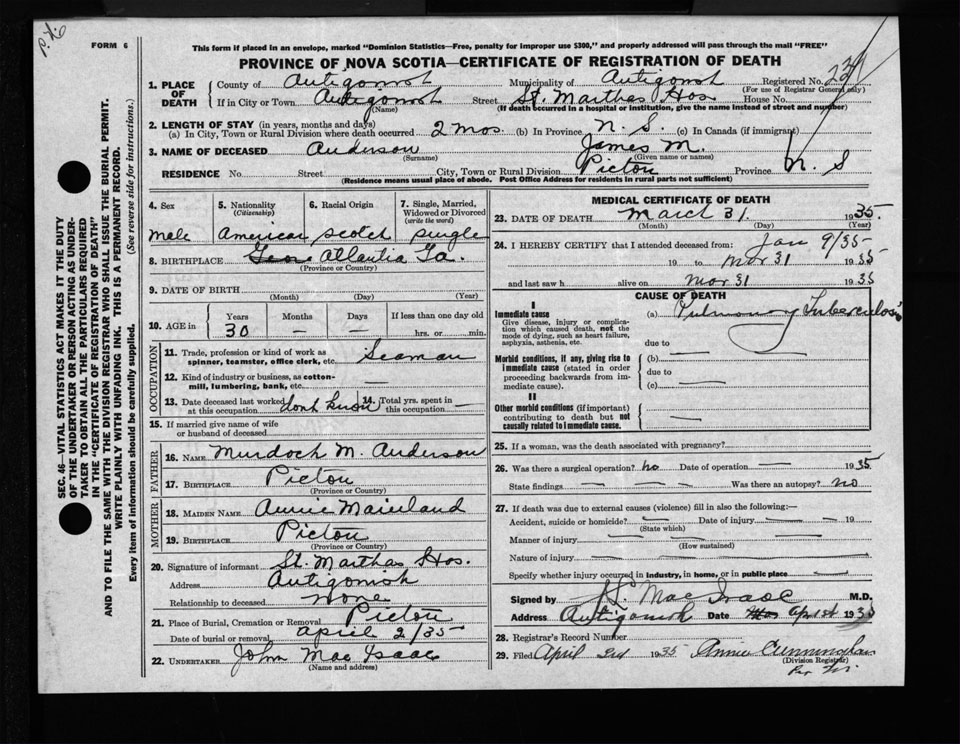 P.T.6
FORM 6
This form if placed in an envelope, marked "Dominion Statistics—Free, penalty for improper use $300," and properly addressed will pass through the mail "FREE"
PROVINCE OF NOVA SCOTIA—CERTIFICATE OF REGISTRATION OF DEATH
1. PLACE OF DEATH County of Antigonish Municipality of Antigonish Registered No.
(For use of Registrar General only)
If in City or Town Antigonish Street St. Marthas Hos House No.
(Name) (If death occurred in a hospital or institution, give the name instead of street and number)
2. LENGTH OF STAY (in years, months and days)
(a) In City, Town or Rural Division where death occurred 2 mos. (b) In Province N. S. (c) In Canada (if immigrant)
3. NAME OF DECEASED Anderson James M.
(Surname) (Given name or names)
RESIDENCE No. Street City, Town or Rural Division Pictou Province N. S
(Residence means usual place of abode. Post Office Address for residents in rural parts not sufficient)
SEC. 46—VITAL STATISTICS ACT MAKES IT THE DUTY
OF THE UNDERTAKER OR PERSON ACTING AS UNDER-
TAKER TO OBTAIN ALL THE PARTICULARS REQUIRED
IN THE "CERTIFICATE OF REGISTRATION OF DEATH"
AND TO FILE THE SAME WITH THE DIVISION REGISTRAR WHO SHALL ISSUE THE BURIAL PERMIT.
WRITE PLAINLY WITH UNFADING INK. THIS IS A PERMANENT RECORD.
Every item of information should be carefully supplied. (See reverse side for instructions.)
4. Sex 5. Nationality (Citizenship) 6. Racial Origin 7. Single, Married, Widowed or Divorced (write the word)
male American scotch single
8. BIRTHPLACE Atlantia Ga.
(Province or Country)
9. DATE OF BIRTH
(Month) (Day) (Year)
10. AGE in Years Months Days If less than one day old
30 — — hrs. or min.
OCCUPATION
11. Trade, profession or kind of work as spinner, teamster, office clerk, etc. Seaman
12. Kind of industry or business, as cotton-mill, lumbering, bank, etc. —
13. Date deceased last worked at this occupation dont know 14. Total yrs. spent in this occupation —
15. If married give name of wife or husband of deceased
FATHER
16. NAME Murdoch M. Anderson
17. BIRTHPLACE Pictou
(Province or Country)
MOTHER
18. MAIDEN NAME Annie
19. BIRTHPLACE Pictou
(Province or Country)
20. Signature of informant St. Marthas Hos.
Address Antigonish
Relationship to deceased none
21. Place of Burial, Cremation or Removal Pictou
Date of burial or removal april 2/35
22. UNDERTAKER John Mac Isaac
(Name and address)
MEDICAL CERTIFICATE OF DEATH
23. DATE OF DEATH March 31 1935.
(Month) (Day) (Year)
24. I HEREBY CERTIFY that I attended deceased from: Jan 9/35
19 to Mar 31 1935
and last saw h alive on Mar 31 1935
CAUSE OF DEATH
I
Immediate cause (a) Pulmonary Tuberculosis
Give disease, injury or complication which caused death, not the mode of dying, such as heart failure, asphyxia, asthenia, etc.
due to
Morbid conditions, if any, giving rise to immediate cause (stated in order proceeding backwards from immediate cause).
(b)
due to
(c)
II
Other morbid conditions (if important) contributing to death but not causally related to immediate cause.
25. If a woman, was the death associated with pregnancy?
26. Was there a surgical operation? no Date of operation — 1935
State findings — Was there an autopsy? no
27. If death was due to external causes (violence) fill in also the following:—
Accident, suicide or homicide? — Date of injury — 19
(State which)
Manner of injury —
(How sustained)
Nature of injury —
Specify whether injury occurred in industry, in home, or in public place —
Signed by Mac Isaac M.D.
Address Antigonish Date Apr 1st 1935
28. Registrar's Record Number
29. Filed April 2nd 1935 Annie Cunningham
(Division Registrar)